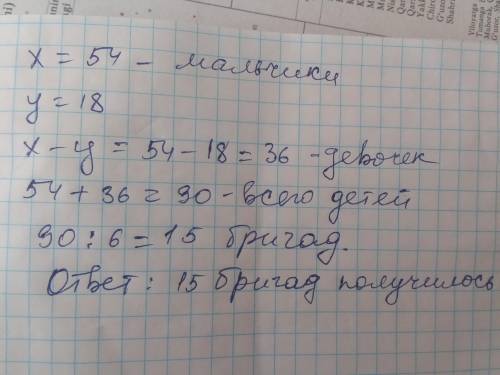 x = 54 - мальчики
y = 18
x - y = 54 - 18 = 36 - девочек
54 + 36 = 90 - всего детей
90 : 6 = 15 бригад.
Ответ: 15 бригад получилось